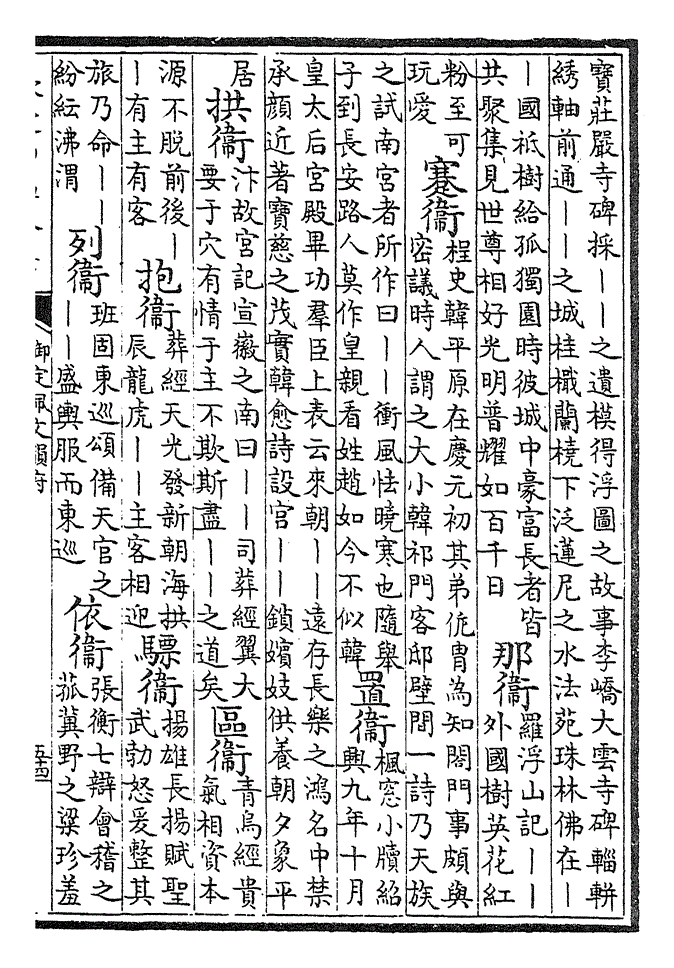 寶莊嚴寺碑採——之遺模得浮圖之故事李嶠大雲寺碑輜軿
綉軸前通——之城桂檝蘭橈下泛蓮尼之水法苑珠林佛在—
—國祇樹給孤獨園時彼城中豪富長者皆
共聚集見世尊相好光明普耀如百千日
那衞
羅浮山記——
外國樹英花紅
粉至可
玩愛
蹇衞
桯史韓平原在慶元初其弟侂胄為知閤門事頗與
密議時人謂之大小韓祁門客邸壁間一詩乃天族
之試南宮者所作曰——衝風怯曉寒也隨舉
子到長安路人莫作皇親看姓趙如今不似韓
置衞
楓窓小牘紹
興九年十月
皇太后宮殿畢功羣臣上表云來朝——遠存長樂之鴻名中禁
承顔近著寶慈之茂實韓愈詩設官——鎖嬪妓供養朝夕象平
居
拱衞
汴故宮記宣徽之南曰——司葬經翼大
要于穴有情于主不欺斯盡——之道矣
區衞
青烏經貴
氣相資本
源不脱前後—
—有主有客
抱衞
葬經天光發新朝海拱
辰龍虎——主客相迎
驃衞
揚雄長揚賦聖
武勃怒爰整其
旅乃命——
紛紜沸渭
列衞
班固東巡頌備天官之
——盛輿服而東巡
依衞
張衡七辯會稽之
菰冀野之粱珍羞
御定佩文韻府